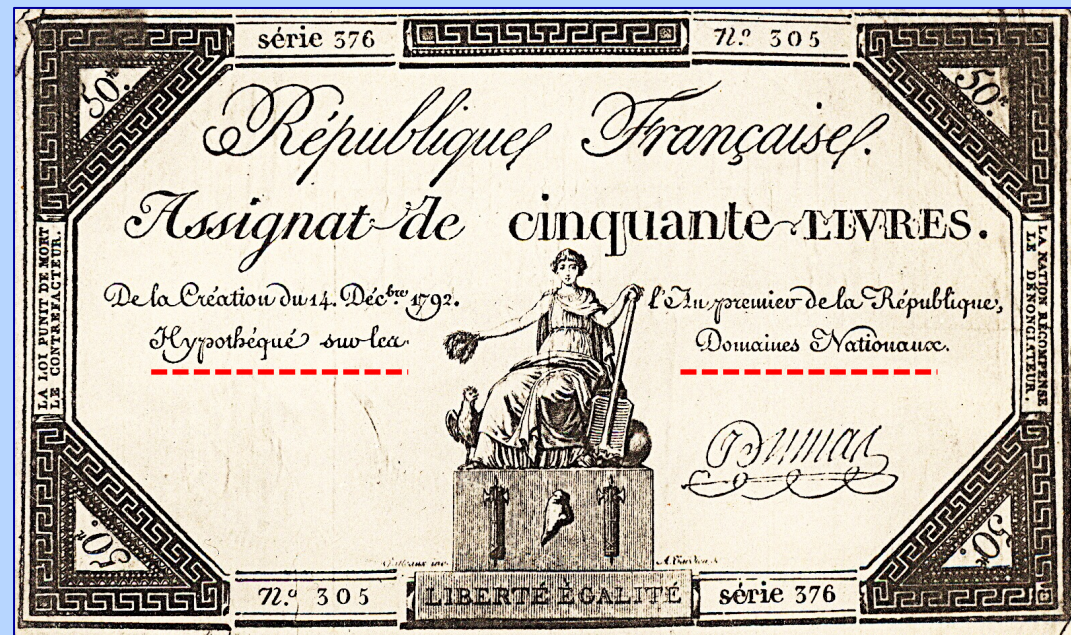 série 376 n.º 305
50.lt 50.lt
République Française.
Assignat de cinquante LIVRES.
De la Création du 14. Décbre 1792. l'An premier de la République,
Hypothéqué sur les Domaines Nationaux.
LA LOI PUNIT DE MORT
LE CONTREFACTEUR.
LA NATION RÉCOMPENSE
LE DÉNONCIATEUR.
50.lt 50.lt
n.º 305 LIBERTÉ ÉGALITÉ série 376